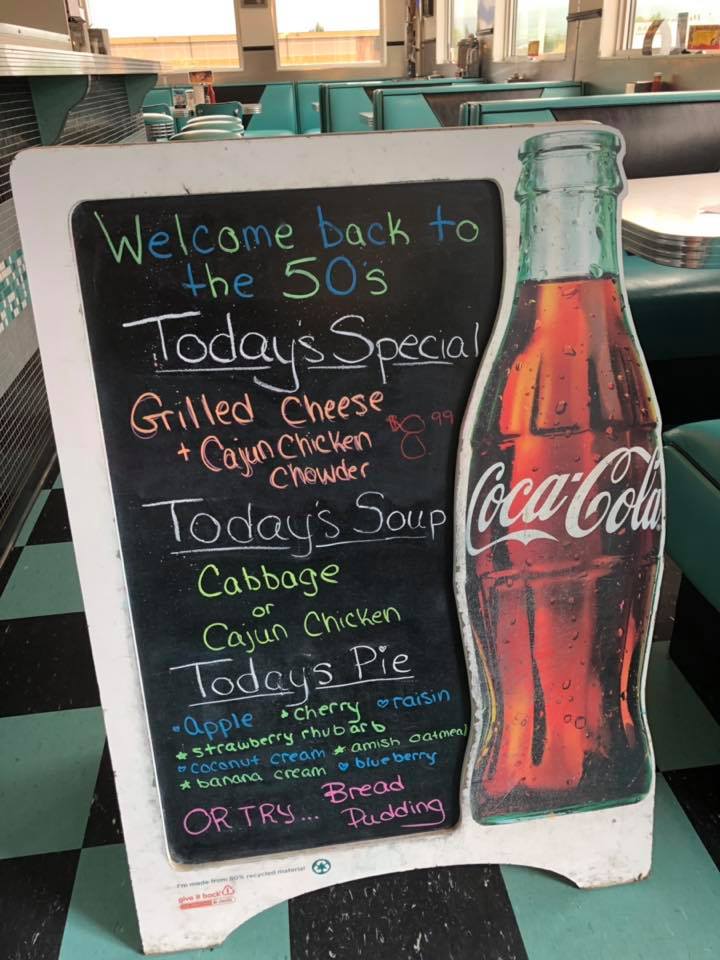 Welcome back to
the 50's
Today's Special
Grilled Cheese
+ Cajun Chicken
Chowder
$8.99
Today's Soup
Cabbage
or
Cajun Chicken
Today's Pie
apple cherry raisin
strawberry rhubarb
coconut cream amish oatmeal
banana cream blueberry
OR TRY... Bread
Pudding
Coca-Cola
I'm made from 80% recycled material
give it back